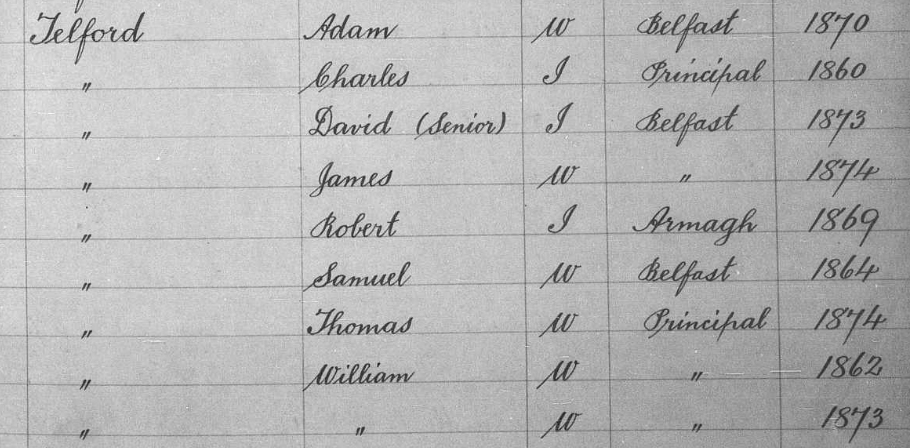 Telford Adam W Belfast 1870
" Charles I Principal 1860
" David (Senior) I Belfast 1873
" James W " 1874
" Robert I Armagh 1869
" Samuel W Belfast 1864
" Thomas W Principal 1874
" William W " 1862
" " W " 1873